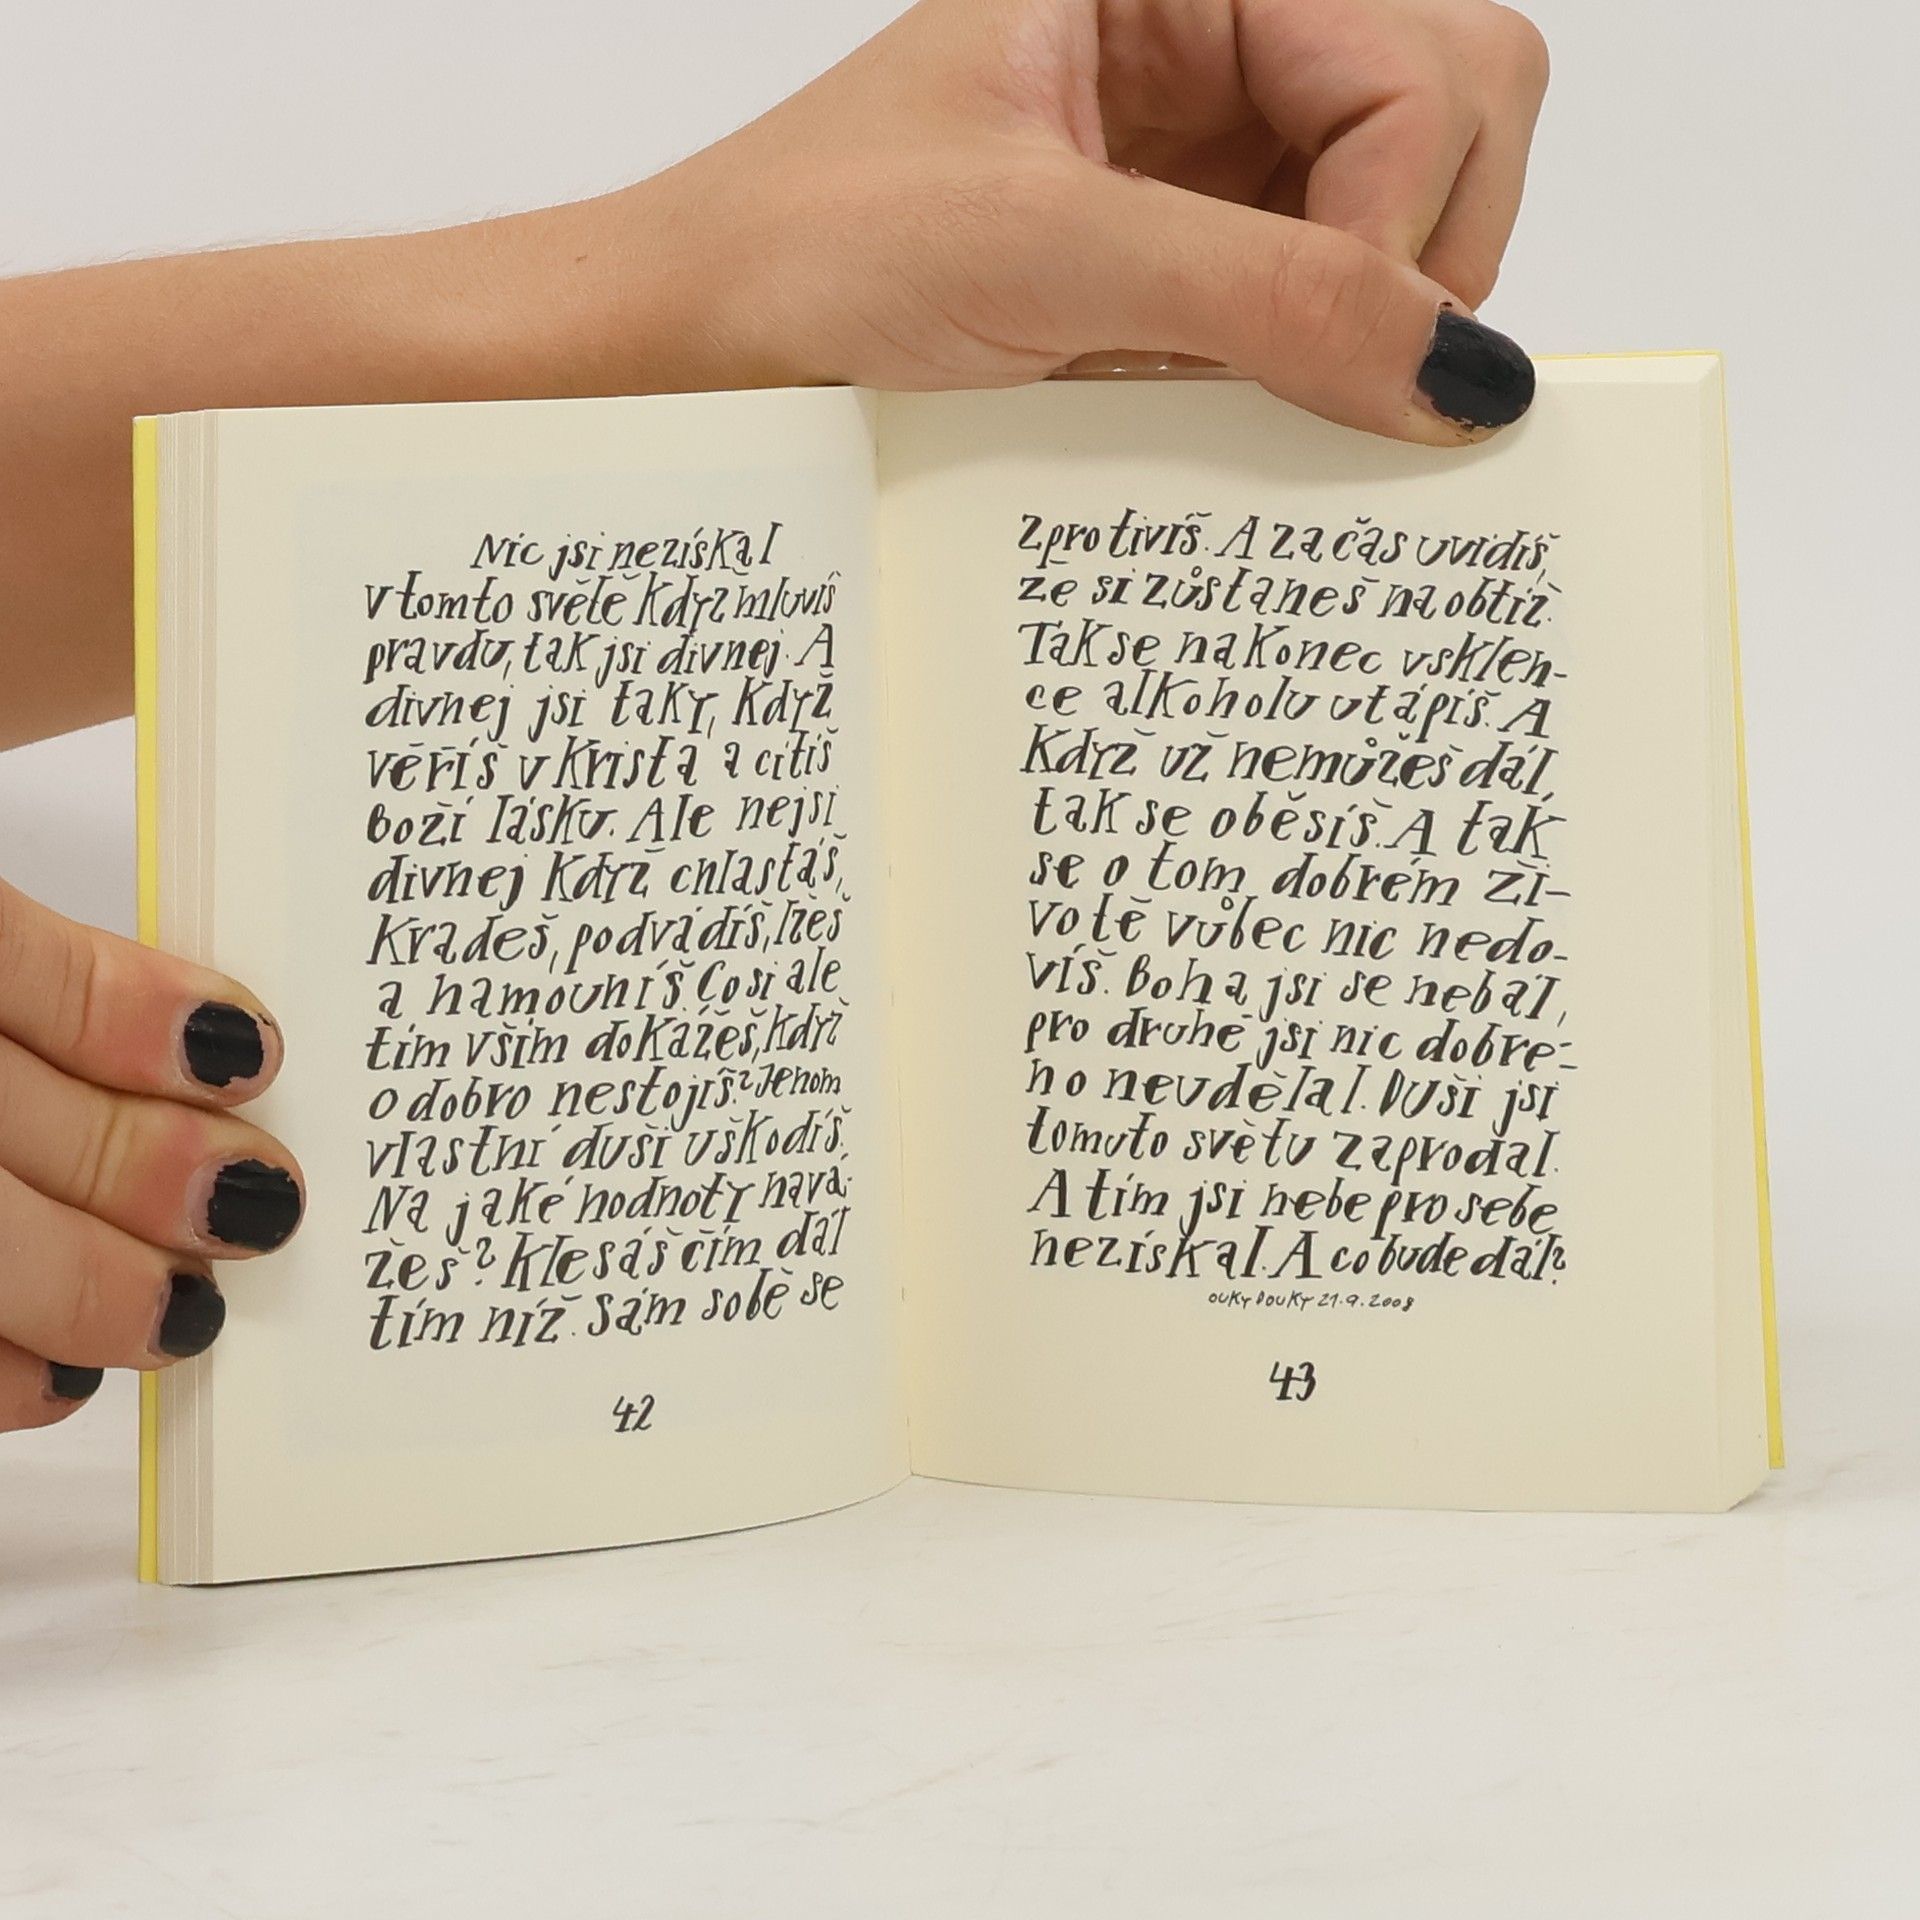 Nic jsi nezískal
v tomto světě když mluvíš
pravdu, tak jsi divnej. A
divnej jsi taky, když
věříš v Krista a cítíš
Boží lásku. Ale nejsi
divnej když chlastáš,
kradeš, podvádíš, lžeš
a hamouníš. Co si ale
tím vším dokážeš, když
o dobro nestojíš? Jenom
vlastní duši uškodíš.
Na jaké hodnoty nava-
žeš? Klesáš čím dál
tím níž. Sám sobě se
42
zprotivíš. A za čas uvidíš,
že si zůstaneš na obtíž.
Tak se nakonec v sklen-
ce alkoholu utápíš. A
když už nemůžeš dál,
tak se oběsíš. A tak
se o tom dobrém ži-
votě vůbec nic nedo-
víš. Boha jsi se nebál,
pro druhé jsi nic dobré-
ho neudělal. Duši jsi
tomuto světu zaprodal.
A tím jsi nebe pro sebe
nezískal. A co bude dál?
OUKY DOUKY 21.9.2008
43